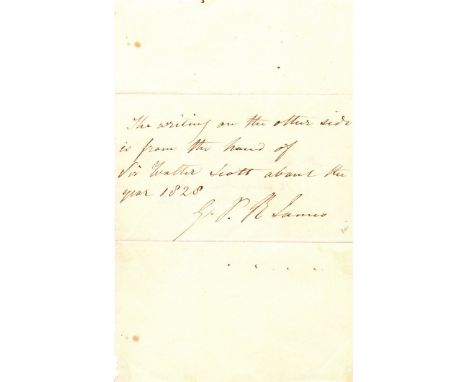 The writing on the other side
is from the hand of
Sir Walter Scott about the
year 1828
G. P. R James